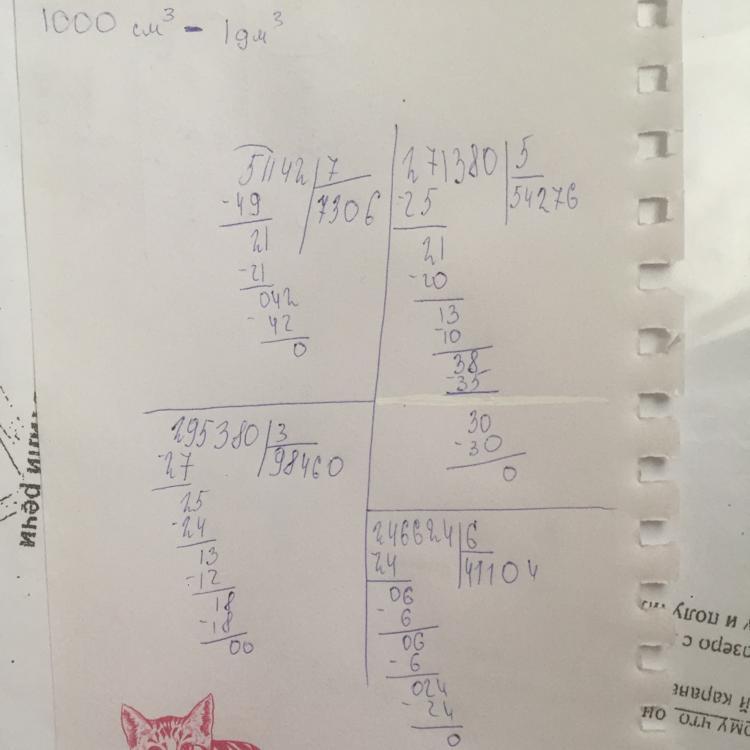 1000 см³ - 1дм³
51142 7
-49 7306
21
-21
042
-42
0
271380 5
-25 54276
21
-20
13
-10
38
-35
30
-30
0
295380 3
-27 98460
25
-24
13
-12
18
-18
00
246624 6
24 41104
06
-6
06
-6
024
-24
0
у и полу
озеро с
й карава
ому что он